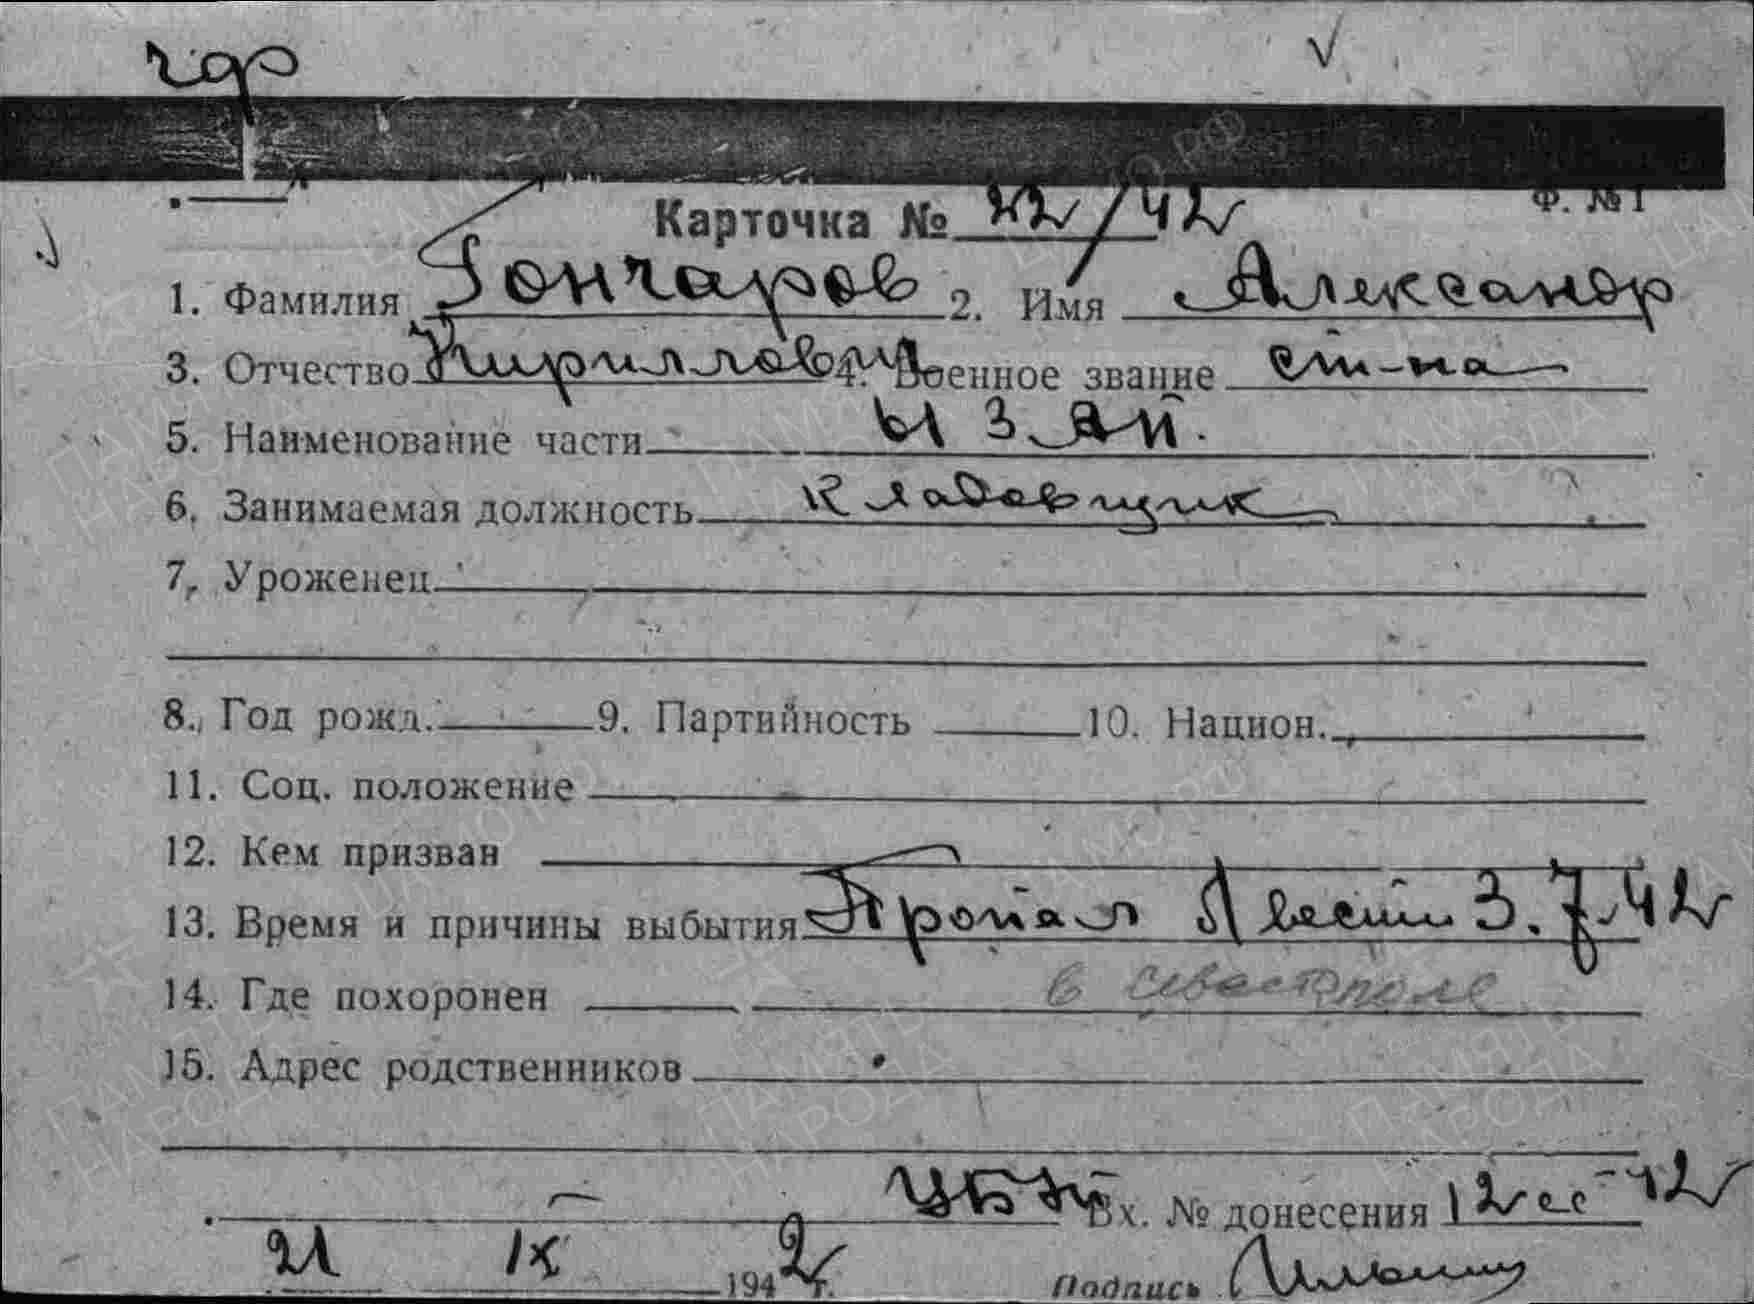 чдр
Ф. №1
Карточка № 22/42
1. Фамилия Гончаров 2. Имя Александр
3. Отчество Кириллович 4. Военное звание ст-на
5. Наименование части 61 ЗАП.
6. Занимаемая должность кладовщик
7. Уроженец
8. Год рожд. 9. Партийность 10. Национ.
11. Соц. положение
12. Кем призван
13. Время и причины выбытия Пропал б/вести 3.7.42
14. Где похоронен в Севастополе
15. Адрес родственников
Вх. № донесения 12сс-42
21 IX 1942 г. Подпись